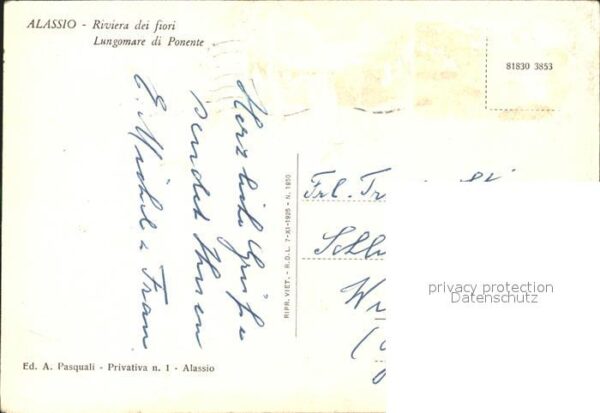 ALASSIO - Riviera dei fiori
Lungomare di Ponente
81830 3853
Herzliche Grüße
sendet Ihnen
E. Michel u Frau
RIPR. VIET. - R.D.L. 7-XI-1925 - N. 1950
Frl.
privacy protection
Datenschutz
Ed. A. Pasquali - Privativa n. 1 - Alassio